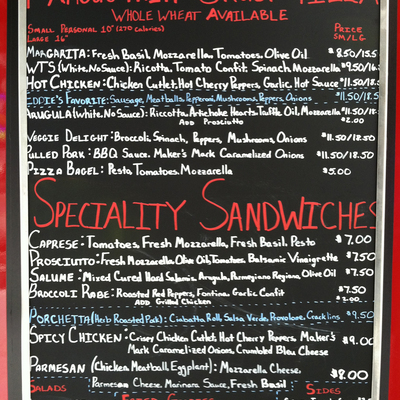 WHOLE WHEAT AVAILABLE
SMALL PERSONAL 10" (270 CALORIES) PRICE
LARGE 16" SM/LG
MARGARITA: FRESH BASIL, MOZZARELLA, TOMATOES, OLIVE OIL $8.50/15.5
WTS (WHITE, NO SAUCE): RICOTTA, TOMATO CONFIT, SPINACH, MOZZARELLA $9.50/16.
HOT CHICKEN: CHICKEN CUTLET, HOT CHERRY PEPPERS, GARLIC, HOT SAUCE $11.50/18.5
EDDIE'S FAVORITE: SAUSAGE, MEATBALLS, PEPPERONI, MUSHROOMS, PEPPERS, ONIONS $11.50/18.5
ARUGULA (WHITE, NO SAUCE): RICCOTTA, ARTICHOKE HEARTS, TRUFFLE OIL, MOZZARELLA $11.50/18.
ADD PROSCIUTTO $2.00
VEGGIE DELIGHT: BROCCOLI, SPINACH, PEPPERS, MUSHROOMS, ONIONS $11.50/18.50
PULLED PORK: BBQ SAUCE, MAKER'S MARK CARAMELIZED ONIONS $11.50/18.50
PIZZA BAGEL: PESTO, TOMATOES, MOZZARELLA $5.00
SPECIALITY SANDWICHES
CAPRESE: TOMATOES, FRESH MOZZARELLA, FRESH BASIL, PESTO $7.00
PROSCIUTTO: FRESH MOZZARELLA, OLIVE OIL, TOMATOES, BALSAMIC VINAIGRETTE $7.50
SALUME: MIXED CURED HARD SALAMIS, ARUGULA, PARMEGIANO REGIANO, OLIVE OIL $7.50
BROCCOLI RABE: ROASTED RED PEPPERS, FONTINA, GARLIC CONFIT $7.50
ADD GRILLED CHICKEN $2.00
PORCHETTA (HERB ROASTED PORK): CIABATTA ROLL, SALSA VERDE, PROVOLONE, CRACKLINS $9.50
SPICY CHICKEN: CRISPY CHICKEN CUTLET, HOT CHERRY PEPPERS, MAKER'S $9.00
MARK CARAMELIZED ONIONS, CRUMBLED BLEU CHEESE
PARMESAN (CHICKEN, MEATBALL, EGGPLANT): MOZZARELLA CHEESE, $8.00
PARMESAN CHEESE, MARINARA SAUCE, FRESH BASIL
SALADS SIDES